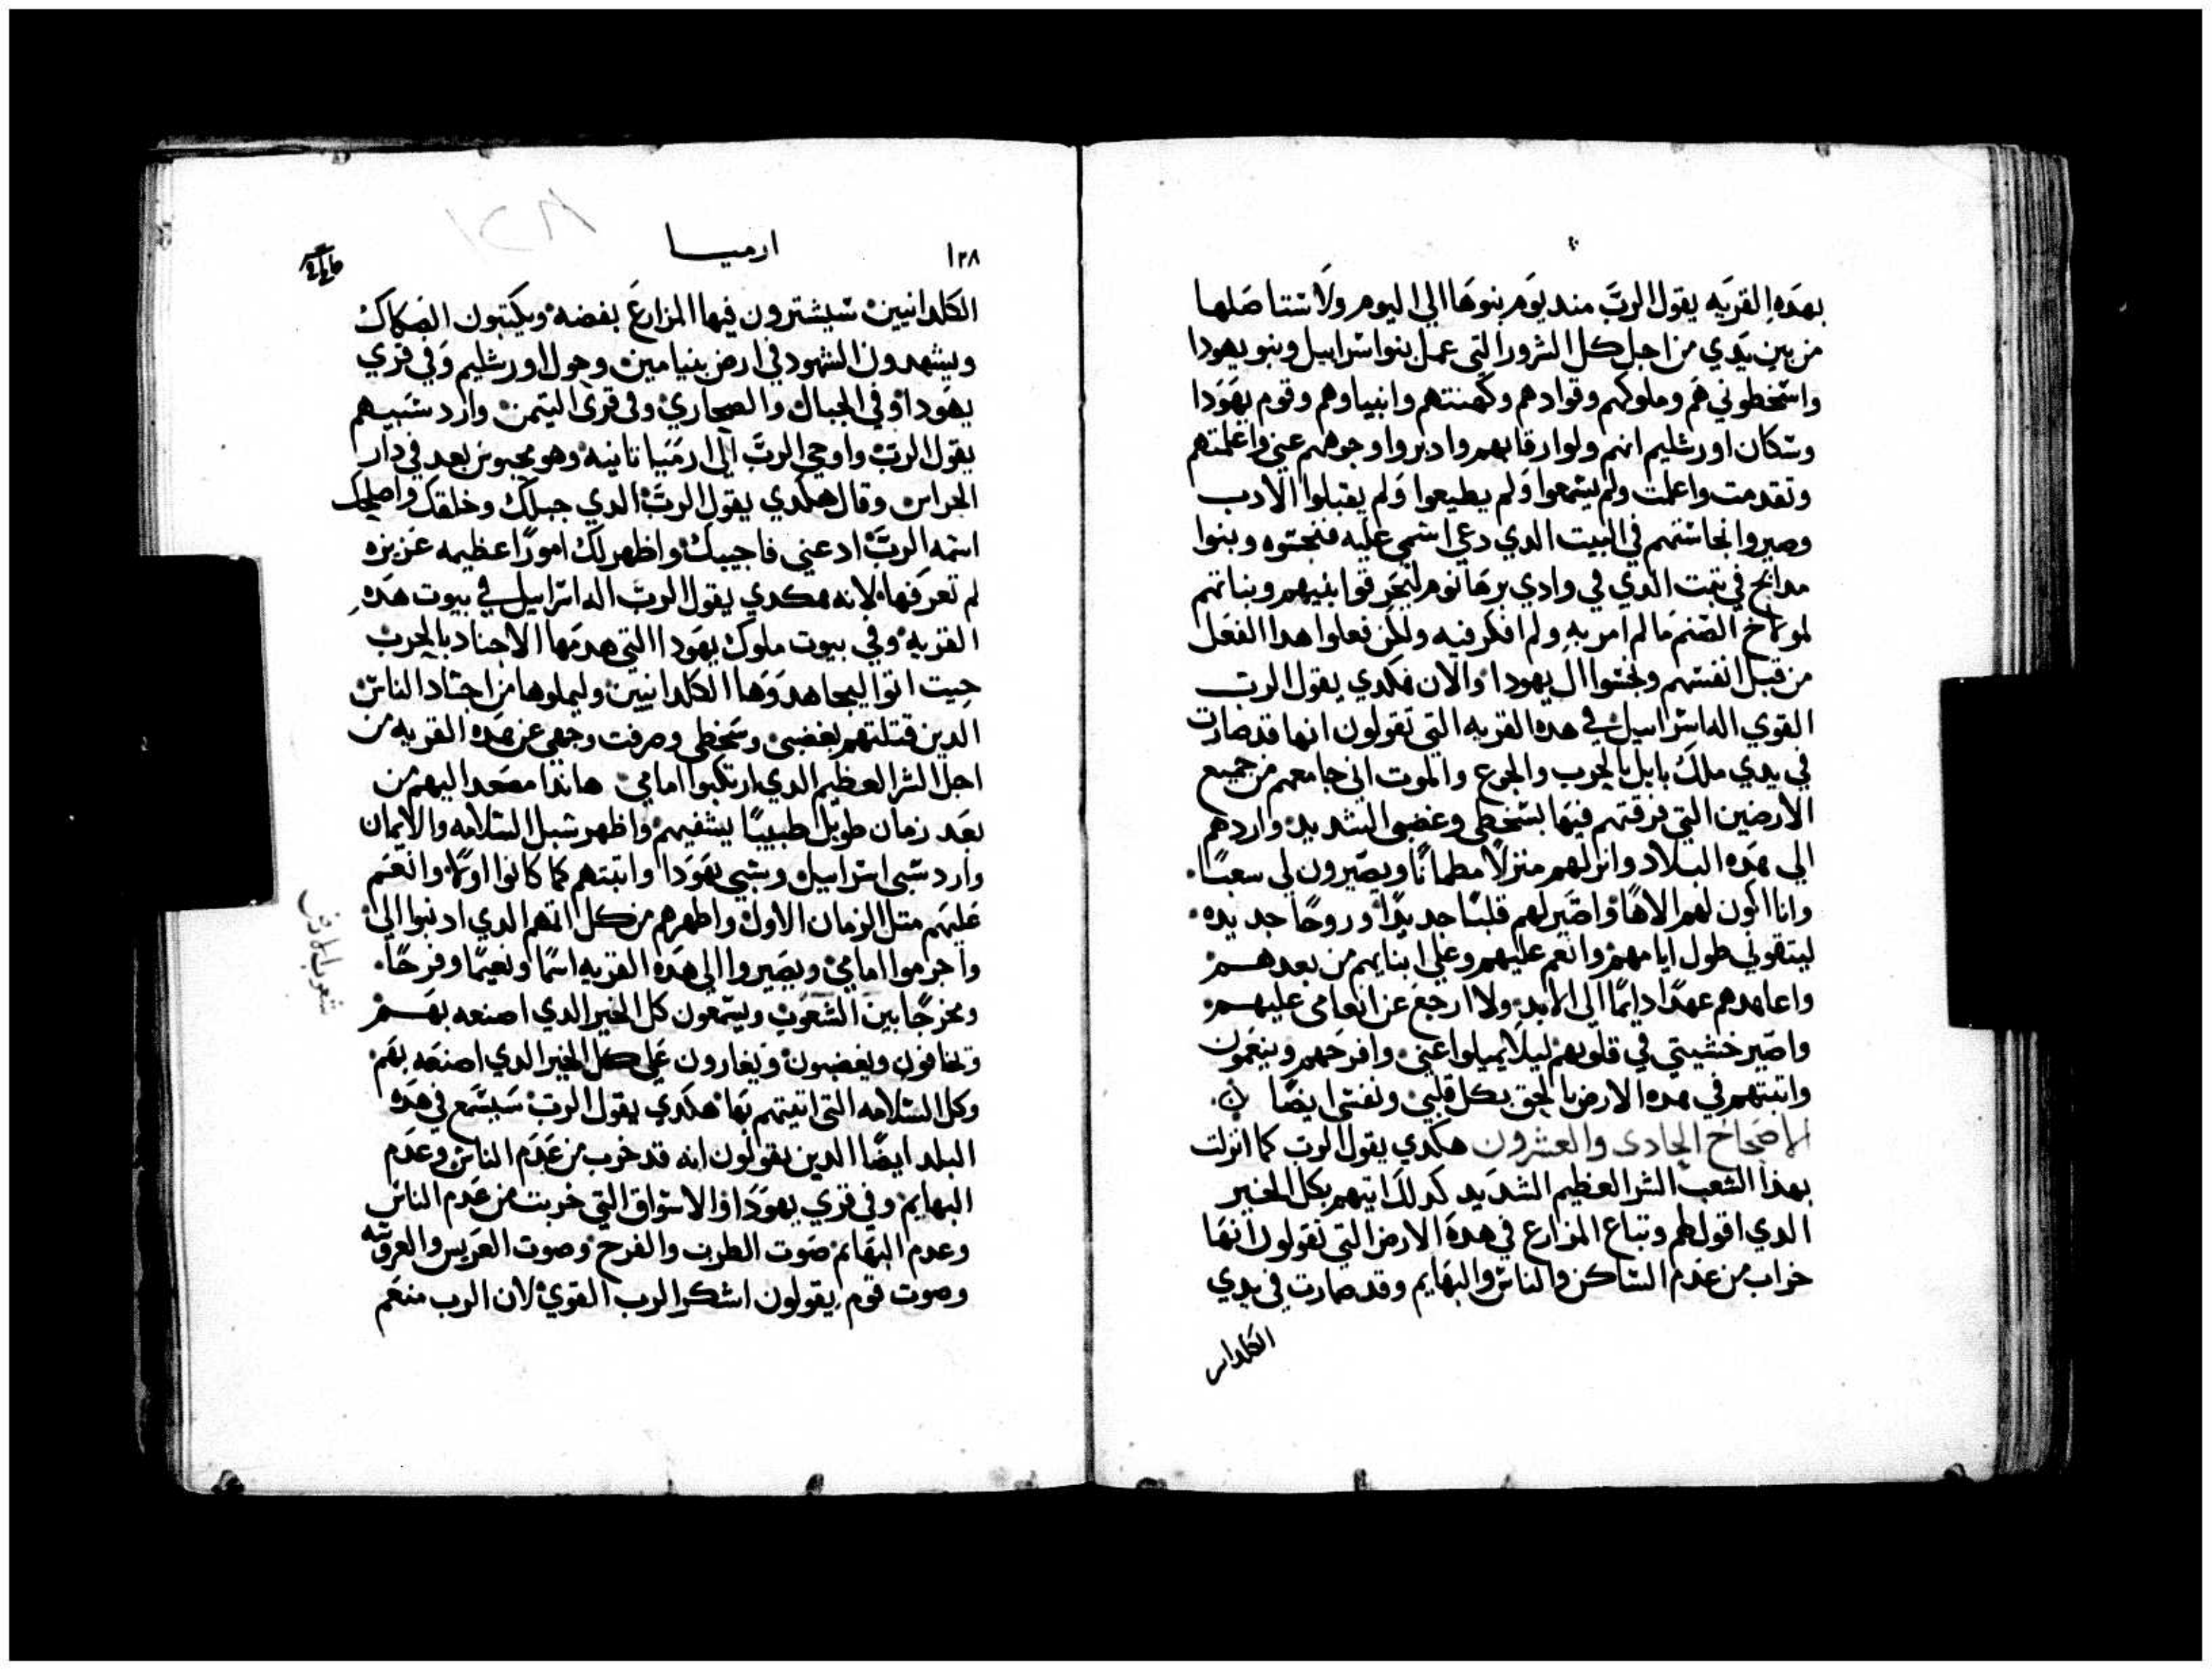 بهذه القريه يقول الرب منذ يوم بنوها الي اليوم ولاستاصلها
من بين يدي من اجل كل الشرور التي عمل بنوا اسراييل وبنو يهودا
واسخطوني هم وملوكهم وقوادهم وكهنتهم وانبياوهم وقوم يهودا
وسكان اورشليم انهم ولوا رقابهم وادبروا وجوههم عني واعلمتهم
وتقدمت واعلمت ولم يسمعوا ولم يطيعوا ولم يقبلوا الادب
وصيروا نجاستهم في البيت الدي دعي اسمي عليه فنجسوه وبنوا
مدابح في الدي في وادي برهانوم ليحرقوا بنيهم وبناتهم
الصنم ما لم امر به ولم افكر فيه ولكن فعلوا هدا الفعل
من قبل انفسهم ال يهودا والان هكدي يقول الرب
القوي اله اسراييل في هده القريه التي تقولون انها قد صارت
في يدي ملك بابل بالحرب والجوع والموت اني جامعهم من جميع
الارضين التي فرقتهم فيها بسخطي وغضبي الشديد واردهم
الي هده البلاد وانزلهم منزلا مطمانا ويصيرون لي سعبا
وانا اكون لهم الاها واصير لهم قلبا جديدا وروحا جديده
ليتقوني طول ايامهم وانعم عليهم وعلي ابنايهم من بعدهم
واعاهدهم عهدا دايما الي الابد ولا ارجع عن انعامي عليهم
واصير خشيتي في قلوبهم ليلا يميلوا عني وافرحهم وينعمون
واتبتهم في هده الارض بالحق بكل قلبي ونفسي ايضا
الاصحاح الحادي والعشرون هكدي يقول الرب كما انزلت
بهدا الشعب الشر العظيم الشديد كدلك اتيهم بكل الخير
الدي اقول لهم وتباع المزارع في هده الارض التي تقولون انها
خراب من عدم الساكن والناس والبهايم وقد صارت في يدي
الكلدان
١٢٨
ارميا
١٢٨
الكلدانيين سيشترون فيها المزارع بفضه ويكتبون الصكاك
ويشهدون الشهود في ارض بنيامين وحول اورشليم وفي قري
يهودا وفي الجبال والصحاري وفي قري التيمن وارد سبيهم
يقول الرب واوحي الرب الي ارميا تانيه وهو محبوس بعد في دار
الحراس وقال هكدي يقول الرب الدي جبلك وخلقك واصلحك
اسمه الرب ادعني فاجيبك واظهر لك امورا عظيمه عزيزه
لم تعرفها لانه هكدي يقول الرب اله اسراييل في بيوت هده
القريه وفي بيوت ملوك يهودا التي هدمها الاجناد بالحرب
حيت اتوا ليجاهدوها الكلدانيين وليملوها من اجساد الناس
الدين قتلتهم بغضبي وسخطي وصرفت وجهي عن هده القريه من
اجل الشر العظيم الدي ارتكبوا امامي هاندا مصعد اليهم من
بعد زمان طويل طبيبا يشفيهم واظهر سبل السلامه والايمان
وارد سبي اسراييل وسبي يهودا واتبتهم كما كانوا اولا وانعم
عليهم متل الزمان الاول واطهرهم من كل اتمهم الدي ادنبوا الي
واجرموا امامي ويصيروا الي هده القريه اسما ونعيما وفرحا
وفخرجا بين الشعوب ويسمعون كل الخير الدي اصنعه بهم
وتخافون ويغضبون ويغارون علي كل الخير الدي اصنعه بهم
وكل السلامه التي اتيتهم بها هكدي يقول الرب سيسمع في هده
البلد ايضا الدين يقولون انه قد خرب من عدم الناس وعدم
البهايم وفي قري يهودا والاسواق التي خربت من عدم الناس
وعدم البهايم صوت الطرب والفرح وصوت العريس والعروسه
وصوت قوم يقولون اشكر الرب القوي لان الرب منعم